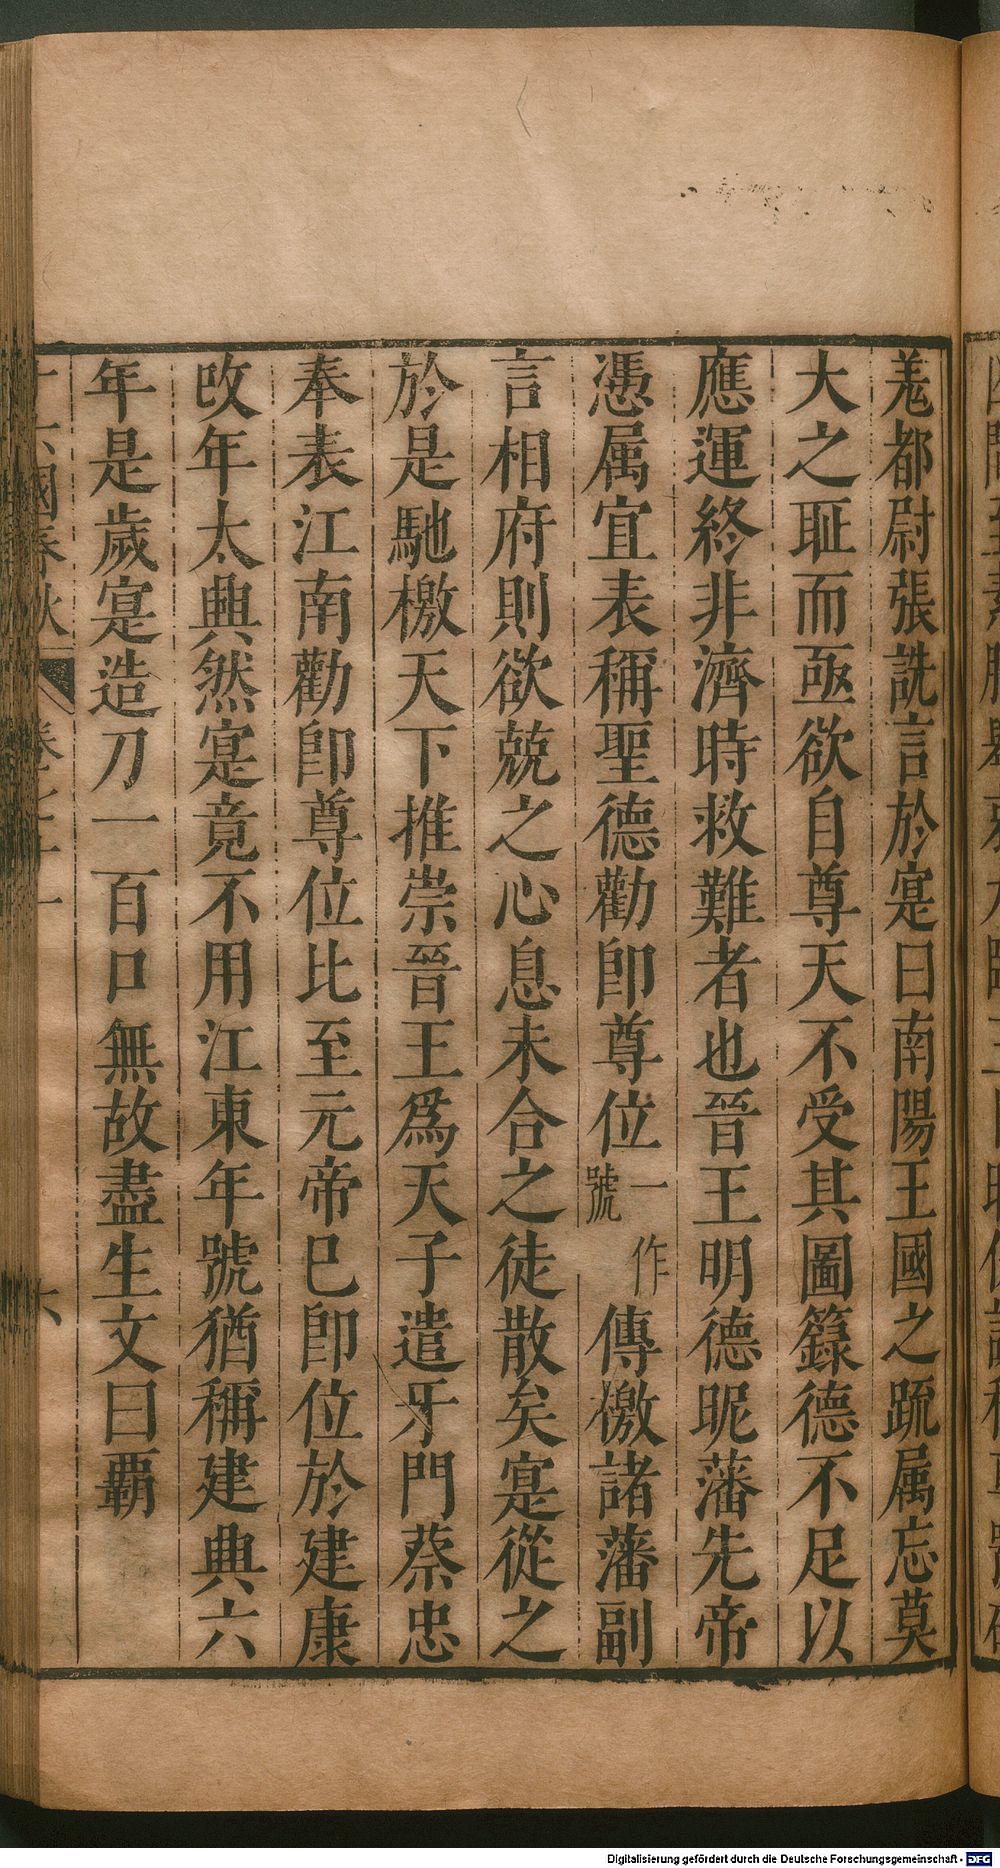 羗都尉張詵言於寔曰南陽王國之䟽属忘莫
大之耻而亟欲自尊天不受其圖籙德不足以
應運終非濟時救難者也晉王明德昵藩先帝
憑属宜表稱聖德勸即尊位一作號傳檄諸藩副
言相府則欲兢之心息未合之徒散矣寔從之
於是馳檄天下推崇晉王爲天子遣牙門蔡忠
奉表江南勸即尊位比至元帝巳即位於建康
改年太興然寔竟不用江東年號猶稱建興六
年是歲寔造刀一百口無故盡生文曰霸
十六國春秋
卷七十一
六
Digitalisierung gefördert durch die Deutsche Forschungsgemeinschaft - DFG